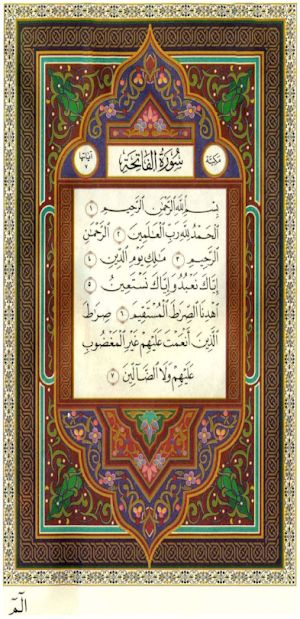 مكية
سورة الفاتحة
آياتها
٧
بِسْمِ اللَّهِ الرَّحْمَٰنِ الرَّحِيمِ ١
الْحَمْدُ لِلَّهِ رَبِّ الْعَالَمِينَ ٢ الرَّحْمَٰنِ
الرَّحِيمِ ٣ مَالِكِ يَوْمِ الدِّينِ ٤
إِيَّاكَ نَعْبُدُ وَإِيَّاكَ نَسْتَعِينُ ٥
اهْدِنَا الصِّرَاطَ الْمُسْتَقِيمَ ٦ صِرَاطَ
الَّذِينَ أَنْعَمْتَ عَلَيْهِمْ غَيْرِ الْمَغْضُوبِ
عَلَيْهِمْ وَلَا الضَّالِّينَ ٧
الٓمٓ